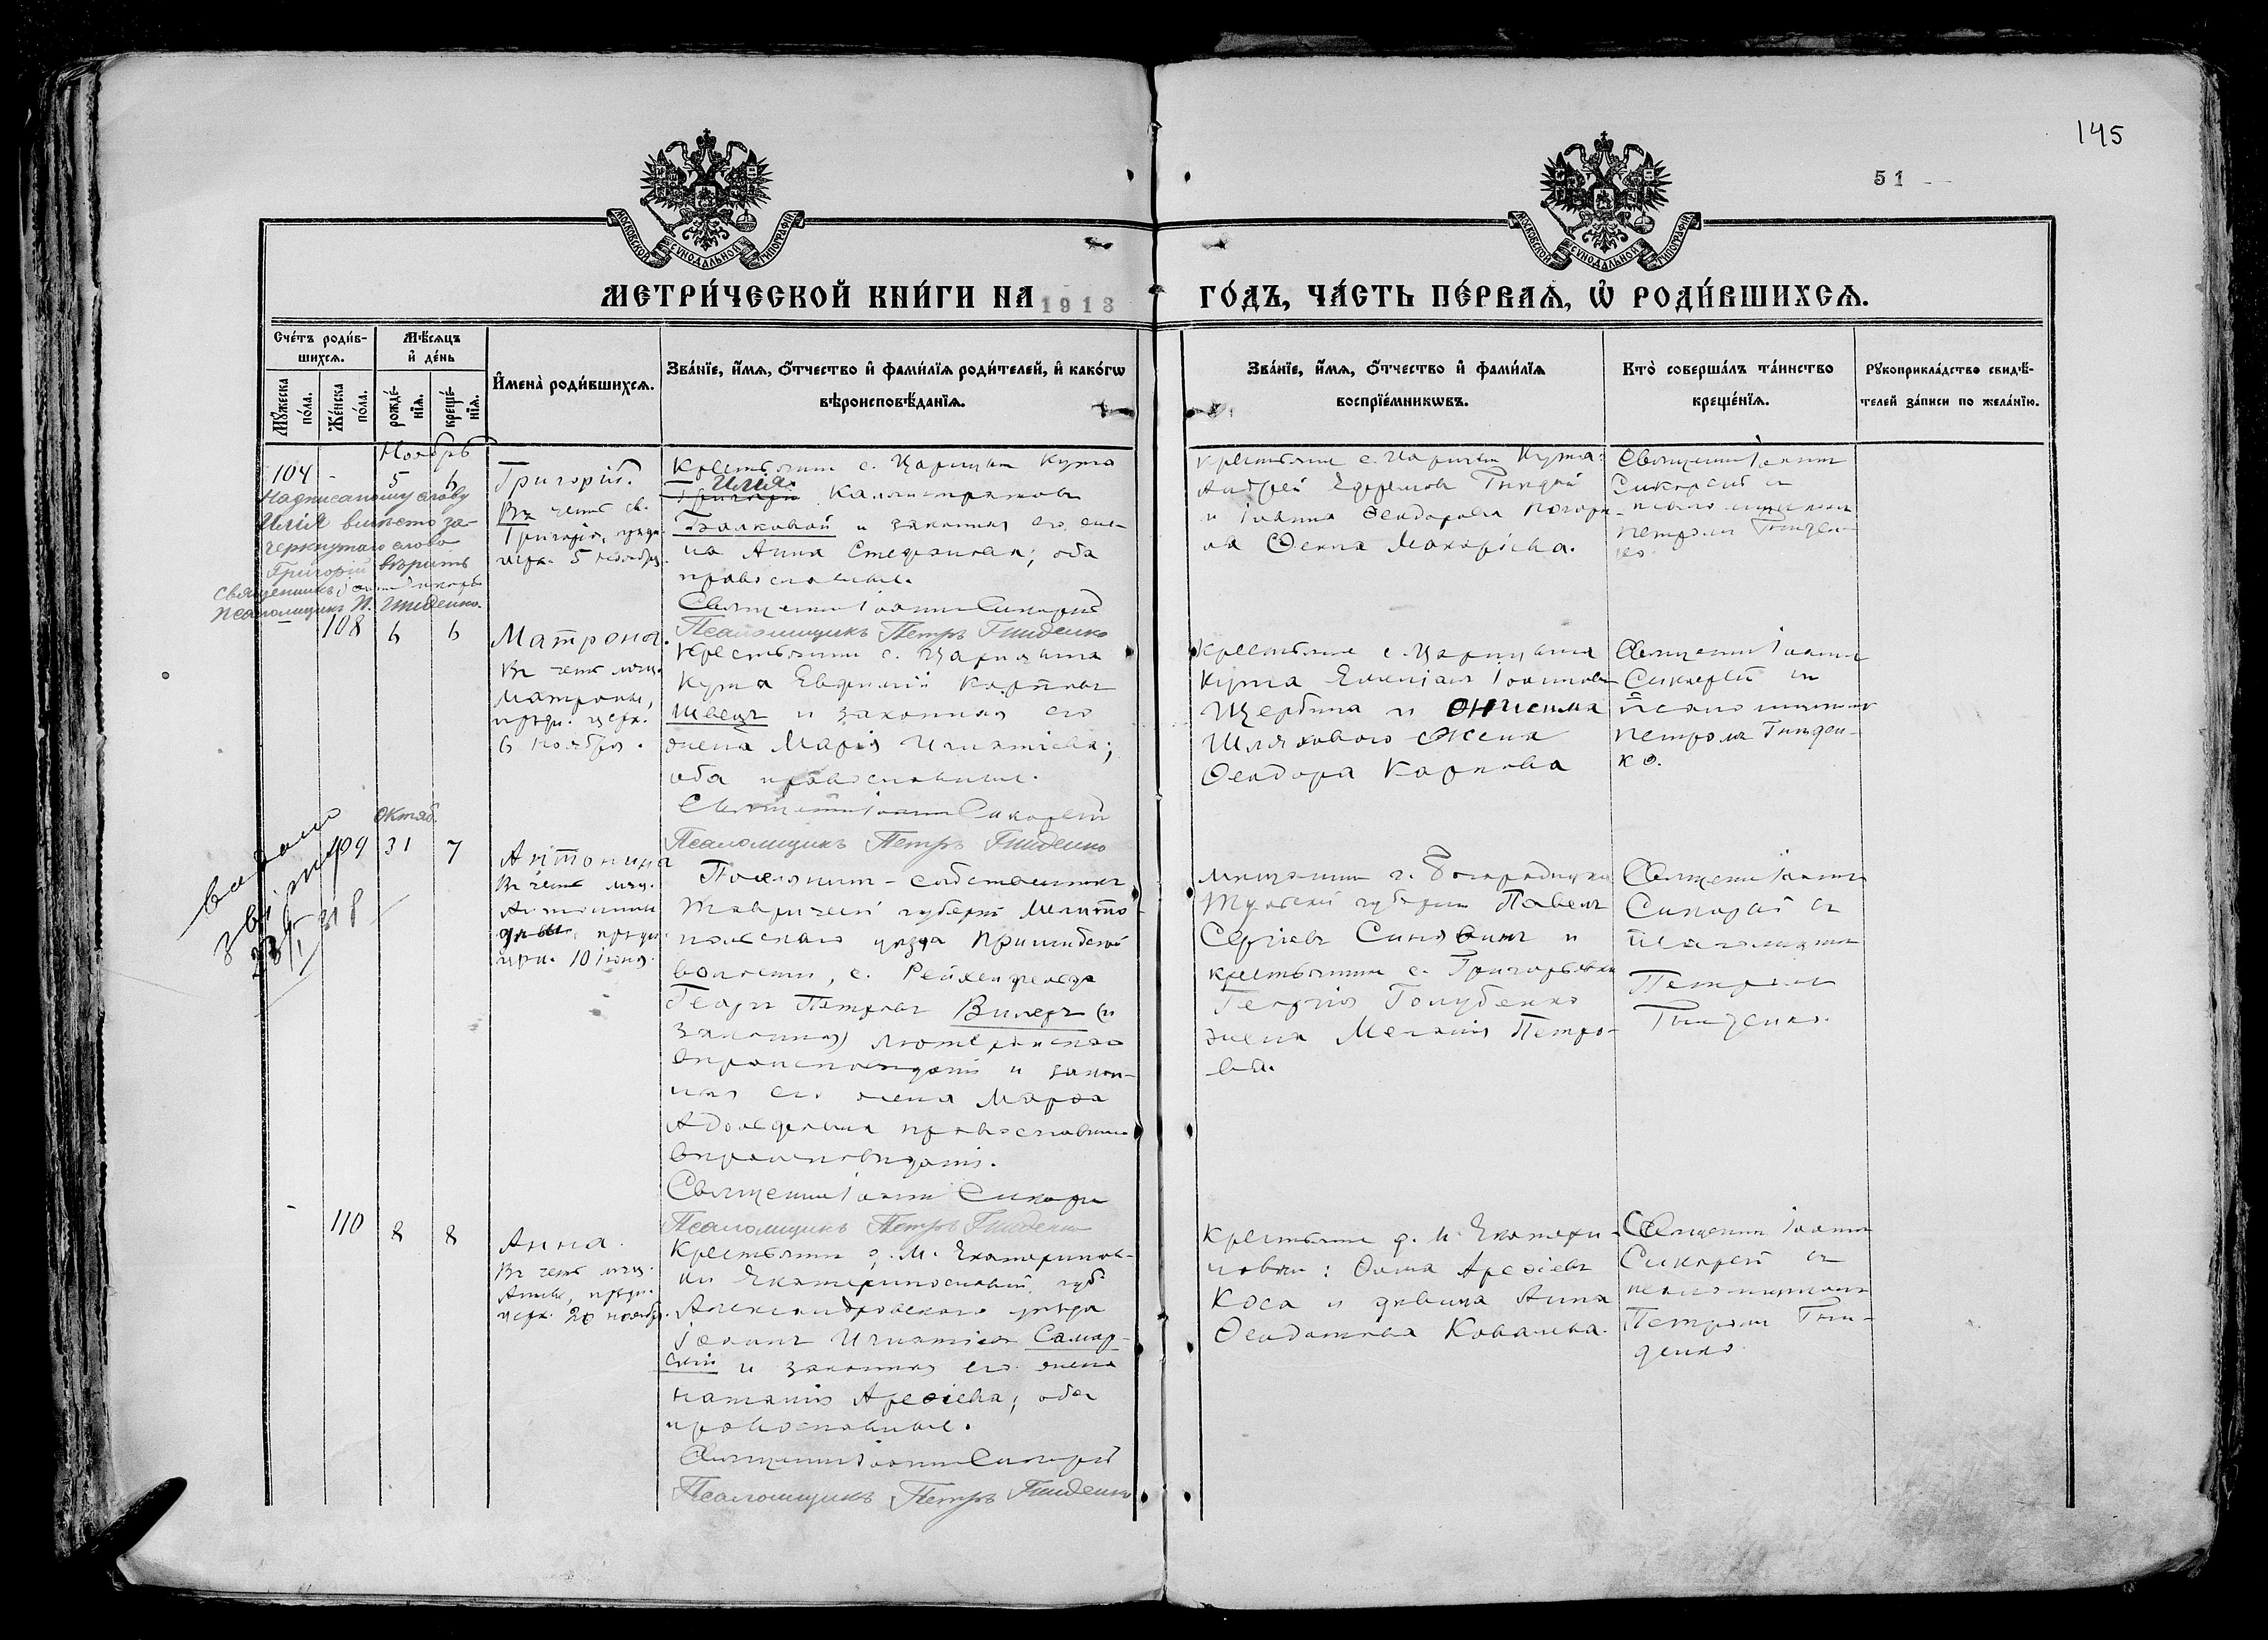 145
51
МОСКОВСКОЙ СѴНОДАЛЬНОЙ ТИПОГРАФІИ
МОСКОВСКОЙ СѴНОДАЛЬНОЙ ТИПОГРАФІИ
МЕТРИ́ЧЕСКОЙ КНИ́ГИ НА 1913 ГО́ДЪ, ЧА́СТЬ ПЕ́РВАѦ, Ѡ҆ РОДИ́ВШИХСѦ.
Сче́тъ роди́в-
шихсѧ.
Мꙋ́жеска по́ла.
Же́нска по́ла.
Мѣ́сѧцъ
и҆ де́нь
рожде́-
нїѧ.
креще́-
нїѧ.
И҆мена̀ роди́вшихсѧ.
Зва́нїе, и҆́мѧ, ѻ҆́тчество и҆ фами́лїѧ роди́телей, и҆ како́гѡ
вѣроисповѣ́данїѧ.
Зва́нїе, и҆́мѧ, ѻ҆́тчество и҆ фами́лїѧ
воспрїе́мникѡвъ.
Кто̀ соверша́лъ та́инство
креще́нїѧ.
Рꙋкоприкла́дство свидѣ́-
телей за́писи по жела́нїю.
Ноябрь
104 - 5 6
Григорій.
Въ честь св.
Григорія, праздн.
церк. 5 ноября.
Надписанному слову
Илія вмѣсто за-
черкнутаго слова
Григорій вѣрить
Священникъ
Псаломщикъ П. Гниденко.
Крестьянин с. Царицын Кута
Илія
Григорій Каллистратовъ
Балковой и законная его же-
на Анна Стефанова; оба
православные.
Священникъ Іоаннъ Сикорскій
Псаломщикъ Петръ Гниденко
Крестьяне с. Царицын Кута:
Андрей Ефремовъ
и Іоанна Ѳеодорова
жена Ѳекла Макаріева.
Священникъ Іоаннъ
Сикорскій съ
псаломщикомъ
Петромъ Гниден-
ко.
108 6 6
Матрона.
Въ честь муч.
Матроны,
праздн. церк.
6 ноября.
Крестьянин с. Царицына
Кута Евфимій Карповъ
Швецъ и законная его
жена Марія Игнатіева;
оба православные.
Священникъ Іоаннъ Сикорскій
Псаломщикъ Петръ Гниденко
Крестьяне с. Царицына
Кута Емеліанъ Іоанновъ
Щербина и Онисима
Шляхового жена
Ѳеодора Карпова
Священникъ Іоаннъ
Сикорскій съ
псаломщикомъ
Петромъ Гниден-
ко.
Октяб.
109 31 7
Антонина
Въ честь муч.
Антонины
праздн.
церк. 10 іюня.
Поселянинъ-собственникъ
Таврической губерніи Мелито-
польскаго уѣзда Пришибской
волости, с. Рейхенфельда
Георгъ Петровъ Вилеръ (и
законная) лютеранскаго
вѣроисповѣданія и закон-
ная его жена Марѳа
православнаго
вѣроисповѣданія.
Священникъ Іоаннъ Сикорскій
Псаломщикъ Петръ Гниденко
Мѣщанинъ г. Богородицка
Тульской губерніи Павелъ
Сергіевъ Синявинъ и
крестьянина с. Григорьевки
Георгія Голубенко
жена Меланія Петро-
ва.
Священникъ Іоаннъ
Сикорскій съ
псаломщикомъ
Петромъ
Гниденко.
- 110 8 8
Анна.
Въ честь муч.
Анны, праздн.
церк. 20 ноября.
Крестьянин д. М. Екатеринов-
ки Екатеринославской губ.
Александровскаго уѣзда
Іоаннъ Игнатіевъ Самар-
скій и законная его жена
Наталія Ареѳіева; оба
православные.
Священникъ Іоаннъ Сикорскій
Псаломщикъ Петръ Гниденко
Крестьяне д. М. Екатери-
новки: Ѳома Ареѳіевъ
Коса и дѣвица Анна
Ѳеодотова Ковалева.
Священникъ Іоаннъ
Сикорскій съ
псаломщикомъ
Петромъ Гни-
денко.